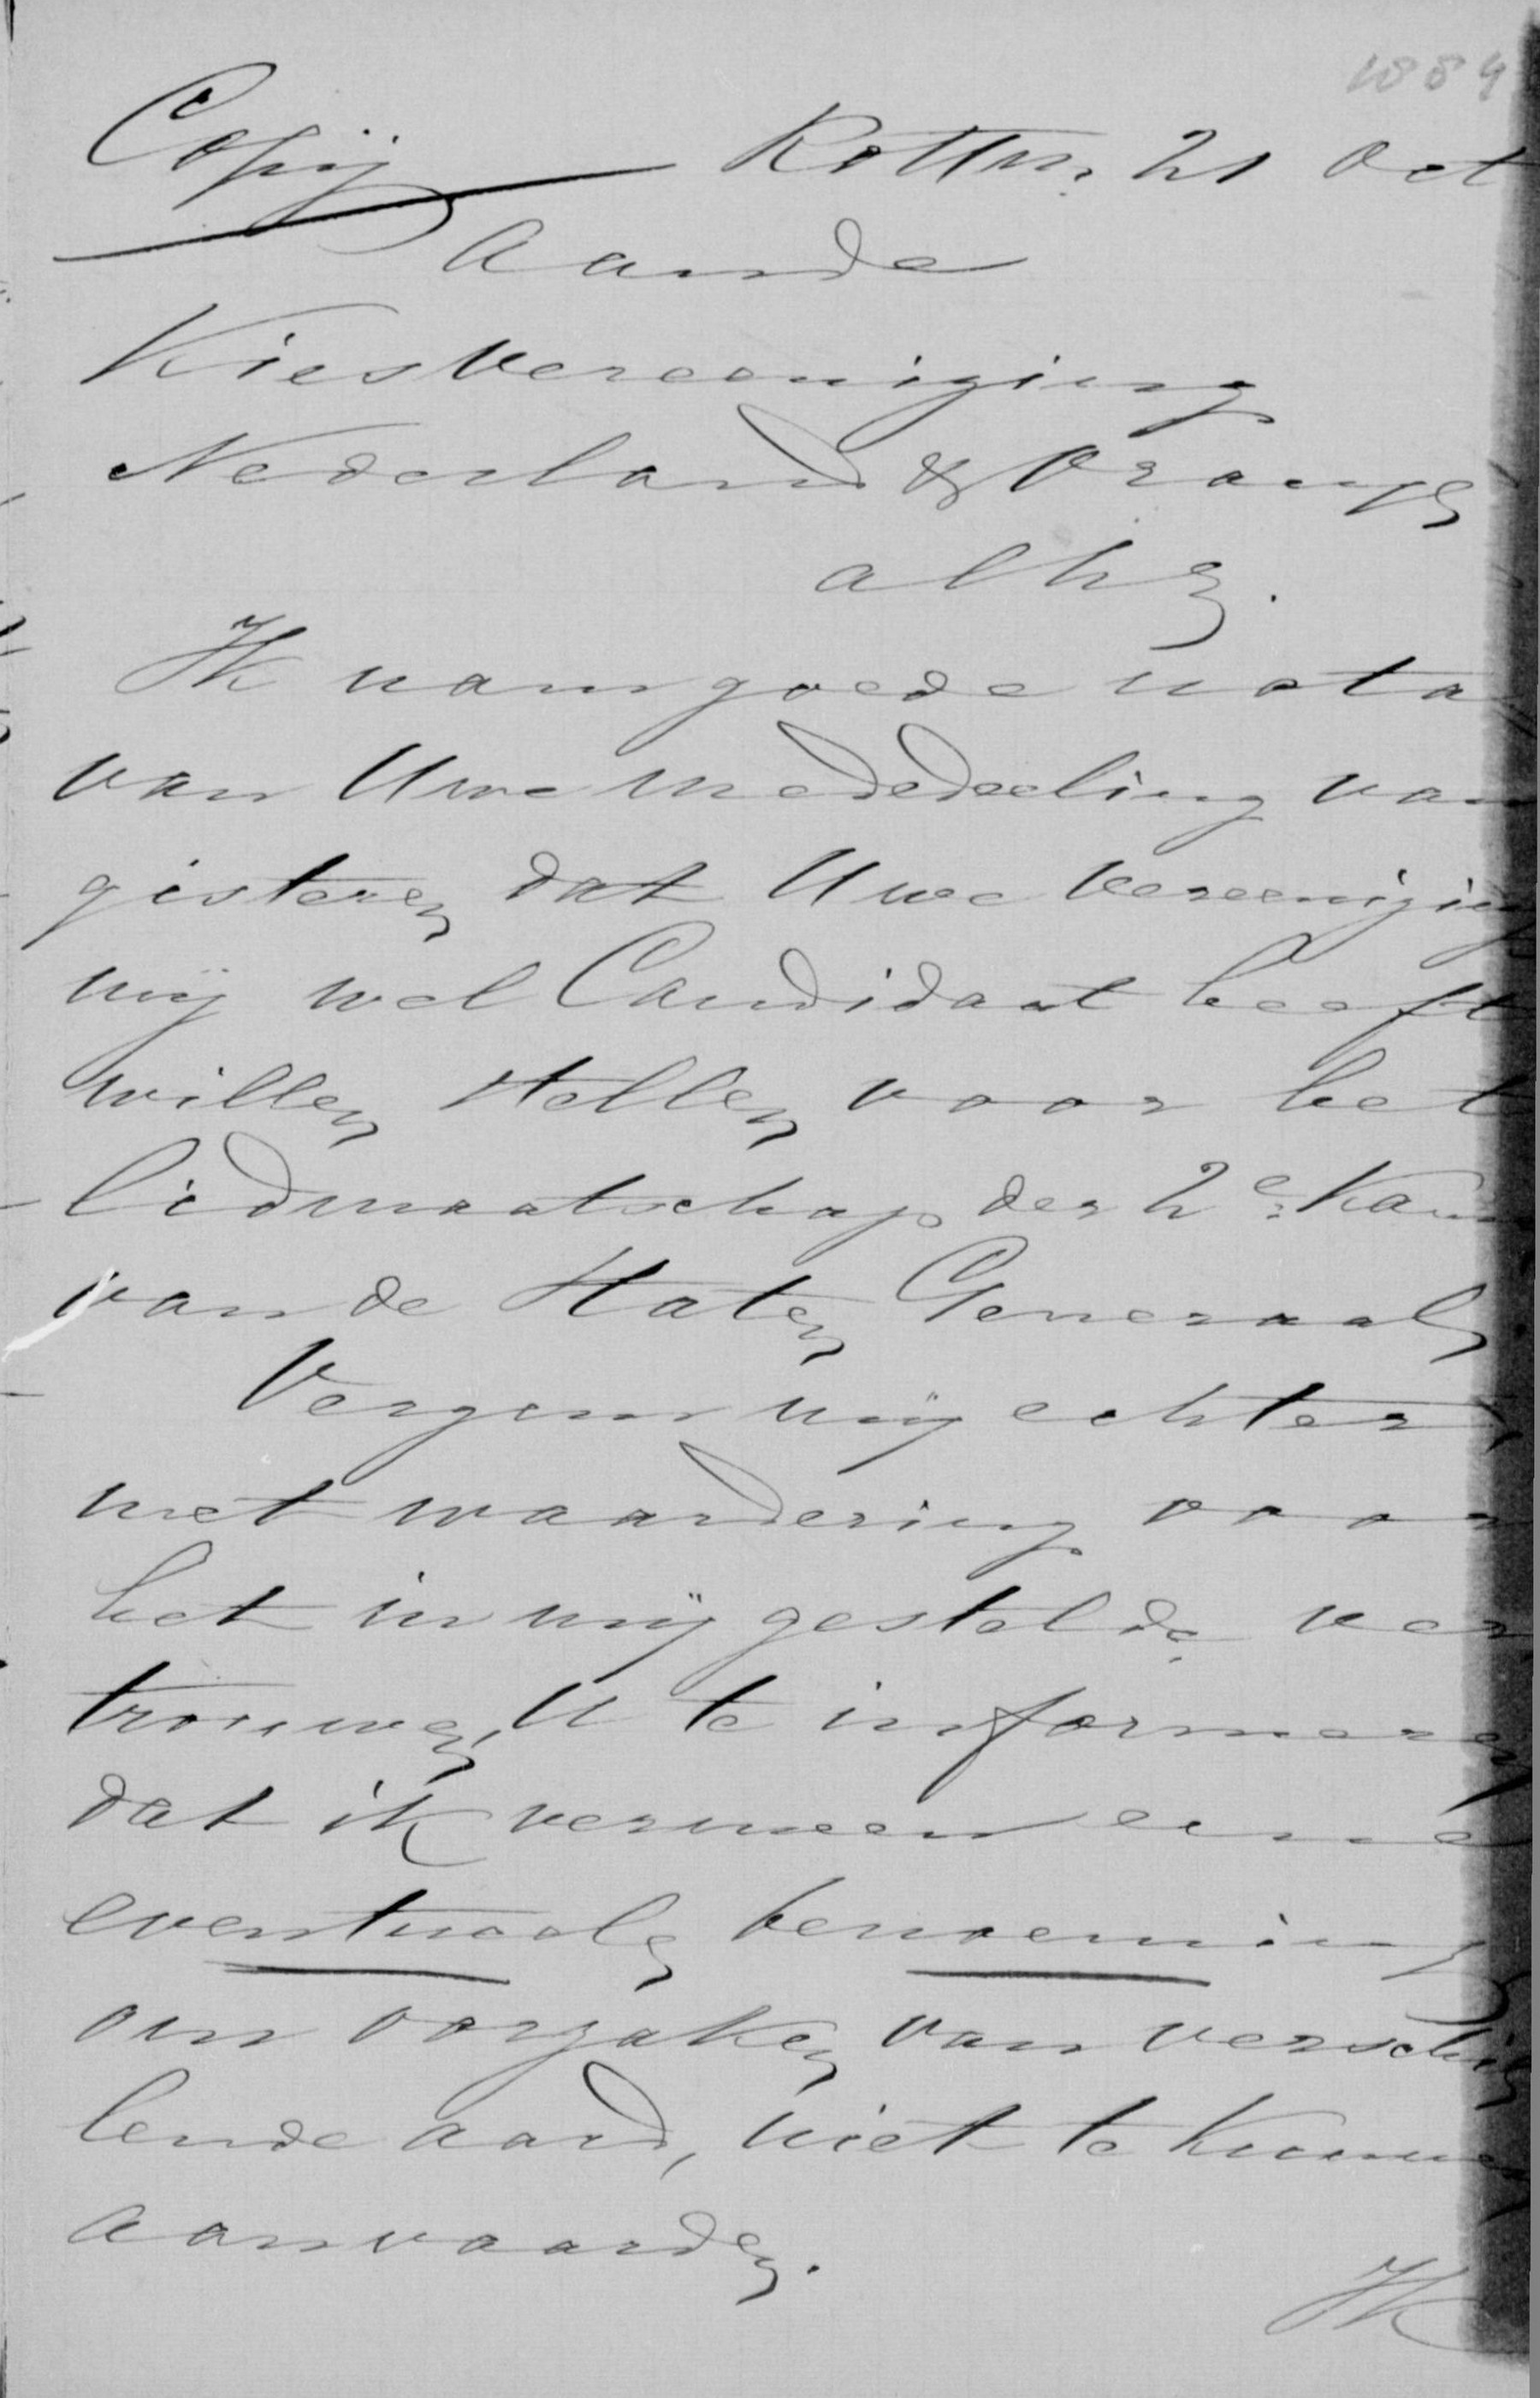 1884
Copij Rottm 21 Oct
Aan de
Kiesvereeniging
Nederland & Oranje
alh.
Ik nam goede nota
van Uwe mededeeling van
gisteren dat Uwe vereeniging
mij wel Candidaat heeft
willen stellen voor het
lidmaatschap der 2e Kam
van de Staten Generaal
Vergun mij echter,
met waardering voor
het in mij gestelde ver
trouwen, U te informeren
dat ik vermeen eene
eventueele benoeming
om oorzaken van verschil
lende aard, niet te kunnen
aanvaarden.
Ik